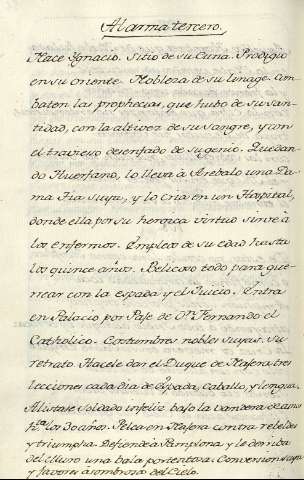 Alarma tercero.
Nace Ygnacio. Sitio de su Cuna. Prodigio
en su oriente. Nobleza de su linage. Com-
baten las prophecias, que hubo de su san-
tidad, con la altivez de su sangre, y con
el travieso desenfado de su genio. Quedan-
do Huerfano, lo lleva à Arebalo una Da-
ma tia suya, y lo cria en un Hospital,
donde ella por su heroyca virtud sirve à
los enfermos. Empleos de su edad hasta
los quince años. Belicoso todo para gue-
rrear con la espada y el Juicio. Entra
en Palacio por Paje de Dn. Fernando el
Catholico. Costumbres nobles suyas. Su
retrato. Hacele dar el Duque de Naxera tres
lecciones cada dia de Espada, Caballo, y lengua.
Alistase Soldado infeliz bajo la vandera de amor
hta. los 30 años. Pelea en Naxera contra rebeldes
y triumpha. Defiende à Pamplona y le derriba
del Muro una bala portentosa. Conversion suya
y favores à sombrosos del Cielo.